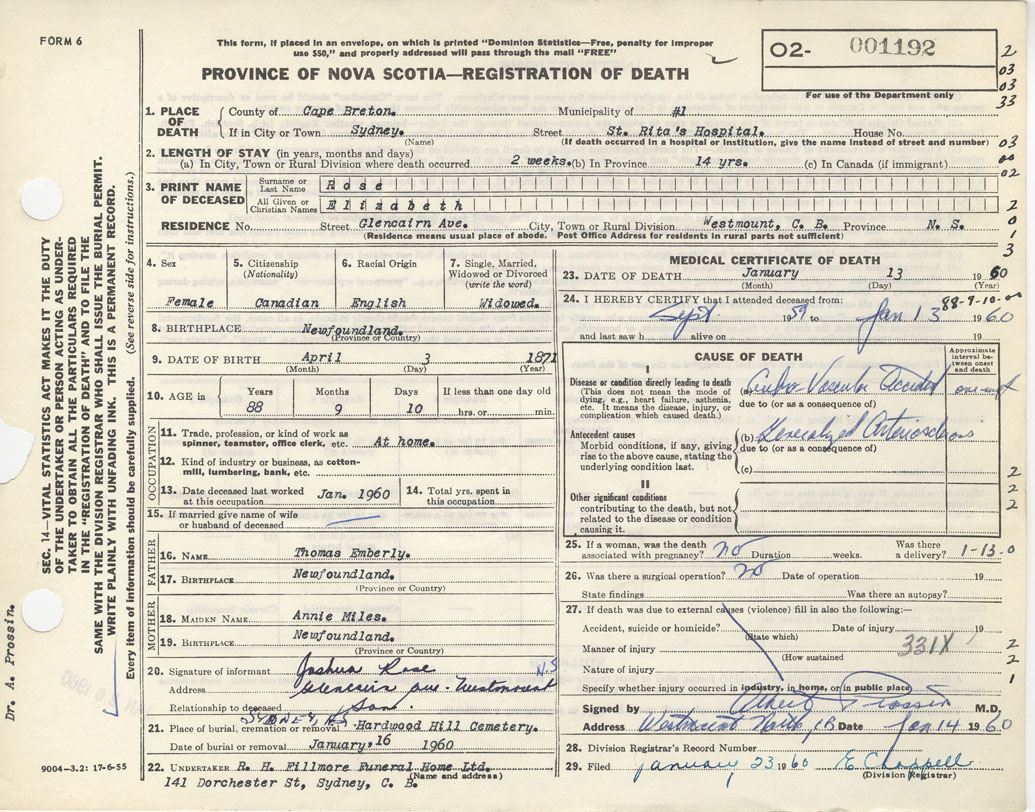 FORM 6
This form, if placed in an envelope, on which is printed "Dominion Statistics—Free, penalty for improper
use $50," and properly addressed will pass through the mail "FREE"
PROVINCE OF NOVA SCOTIA—REGISTRATION OF DEATH
O2- 001192
For use of the Department only
2
03
03
33
1. PLACE OF DEATH
County of Cape Breton. Municipality of #1
If in City or Town Sydney. Street St. Rita's Hospital. House No.
(Name) (If death occurred in a hospital or institution, give the name instead of street and number)
03
2. LENGTH OF STAY (in years, months and days)
(a) In City, Town or Rural Division where death occurred 2 weeks. (b) In Province 14 yrs. (c) In Canada (if immigrant)
02
3. PRINT NAME OF DECEASED
Surname or Last Name Rose
All Given or Christian Names Elizabeth
2
RESIDENCE No. Street Glencairn Ave. City, Town or Rural Division Westmount, C. B. Province N. S.
(Residence means usual place of abode. Post Office Address for residents in rural parts not sufficient)
0
1
3
4. Sex
Female
5. Citizenship
(Nationality)
Canadian
6. Racial Origin
English
7. Single, Married,
Widowed or Divorced
(write the word)
Widowed.
8. BIRTHPLACE Newfoundland.
(Province or Country)
9. DATE OF BIRTH April 3 1871
(Month) (Day) (Year)
10. AGE in
Years 88
Months 9
Days 10
If less than one day old
hrs. or min.
OCCUPATION
11. Trade, profession, or kind of work as
spinner, teamster, office clerk, etc. At home.
12. Kind of industry or business, as cotton-
mill, lumbering, bank, etc.
13. Date deceased last worked
at this occupation. Jan. 1960
14. Total yrs. spent in
this occupation.
15. If married give name of wife
or husband of deceased
FATHER
16. NAME Thomas Emberly.
17. BIRTHPLACE Newfoundland.
(Province or Country)
MOTHER
18. MAIDEN NAME Annie Miles.
19. BIRTHPLACE Newfoundland.
(Province or Country)
20. Signature of informant Joshua Rose
N.S
Address Glencairn Ave. Westmount
Relationship to deceased Son.
SYDNEY, NS
21. Place of burial, cremation or removal Hardwood Hill Cemetery.
Date of burial or removal January, 16 1960
22. UNDERTAKER R. H. Fillmore Funeral Home Ltd.
(Name and address)
141 Dorchester St, Sydney, C. B.
MEDICAL CERTIFICATE OF DEATH
23. DATE OF DEATH January 13 1960
(Month) (Day) (Year)
88-9-10
24. I HEREBY CERTIFY that I attended deceased from:
Sept. 1959 to Jan 13 1960
and last saw h alive on 19
CAUSE OF DEATH
Approximate
interval be-
tween onset
and death
I
Disease or condition directly leading to death
(This does not mean the mode of
dying, e.g., heart failure, asthenia,
etc. It means the disease, injury, or
complication which caused death.)
(a) Cerebro-Vascular Accident
due to (or as a consequence of)
Antecedent causes
Morbid conditions, if any, giving
rise to the above cause, stating the
underlying condition last.
(b) Generalized Arteriosclerosis
due to (or as a consequence of)
(c)
2
2
2
II
Other significant conditions
contributing to the death, but not
related to the disease or condition
causing it.
25. If a woman, was the death
associated with pregnancy? no Duration weeks. Was there
a delivery?
1-13-0
26. Was there a surgical operation? no Date of operation 19
State findings Was there an autopsy?
27. If death was due to external causes (violence) fill in also the following:—
Accident, suicide or homicide? Date of injury 19
(State which)
Manner of injury 331X
(How sustained
Nature of injury
2
2
1
Specify whether injury occurred in industry, in home, or in public place
Signed by Albert Prossin M.D,
Address Westmount North, CB Date Jan 14 1960
28. Division Registrar's Record Number
29. Filed January 23 1960 E Chappell
(Division Registrar)
9004-3.2: 17-6-55
SEC. 14—VITAL STATISTICS ACT MAKES IT THE DUTY
OF THE UNDERTAKER OR PERSON ACTING AS UNDER-
TAKER TO OBTAIN ALL THE PARTICULARS REQUIRED
IN THE "REGISTRATION OF DEATH" AND FILE THE
SAME WITH THE DIVISION REGISTRAR WHO SHALL ISSUE THE BURIAL PERMIT.
WRITE PLAINLY WITH UNFADING INK. THIS IS A PERMANENT RECORD.
Every item of information should be carefully supplied. (See reverse side for instructions.)
Dr. A. Prossin.